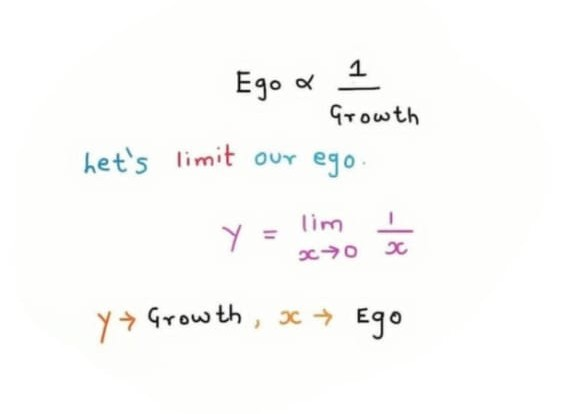 Ego ∝ 1/Growth
Let's limit our ego.
y = lim x→0 1/x
y → Growth, x → Ego